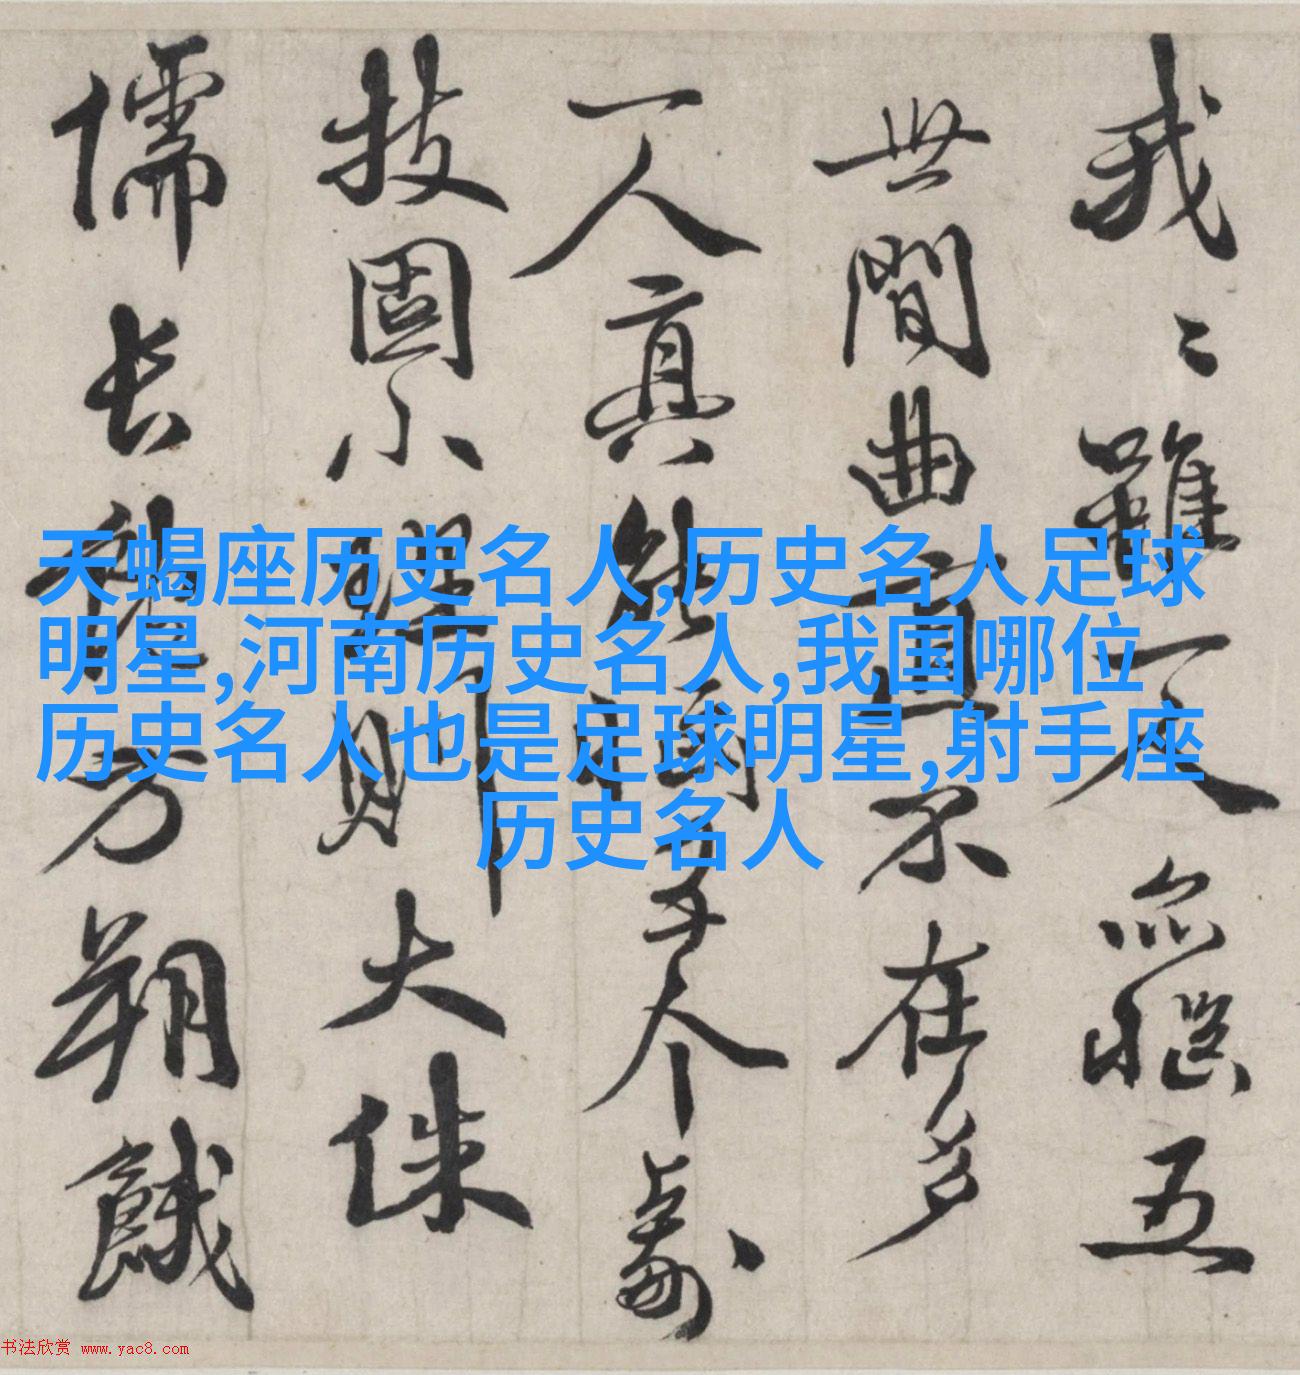 天蝎座历史名人,历史名人足球
明星,河南历史名人,我国哪位
历史名人也是足球明星,射手座
历史名人
我〻〻雖一人五
世間曲直不在多
一人真能個
技固小則大侏
儒长飽方朔餓
书法欣赏 www.yac8.com